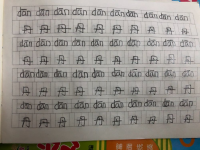 dān dān dān dān dān dān dān dān dān
丹 丹 丹 丹 丹 丹 丹 丹 丹
dān dān dān dān dān dān dān dān dān
丹 丹 丹 丹 丹 丹 丹 丹 丹
dān dān dān dān dān dān dān dān dān
丹 丹 丹 丹 丹 丹 丹 丹 丹
dān dān dān dān dān dān dān dān dān
丹 丹 丹 丹 丹 丹 丹 丹 丹